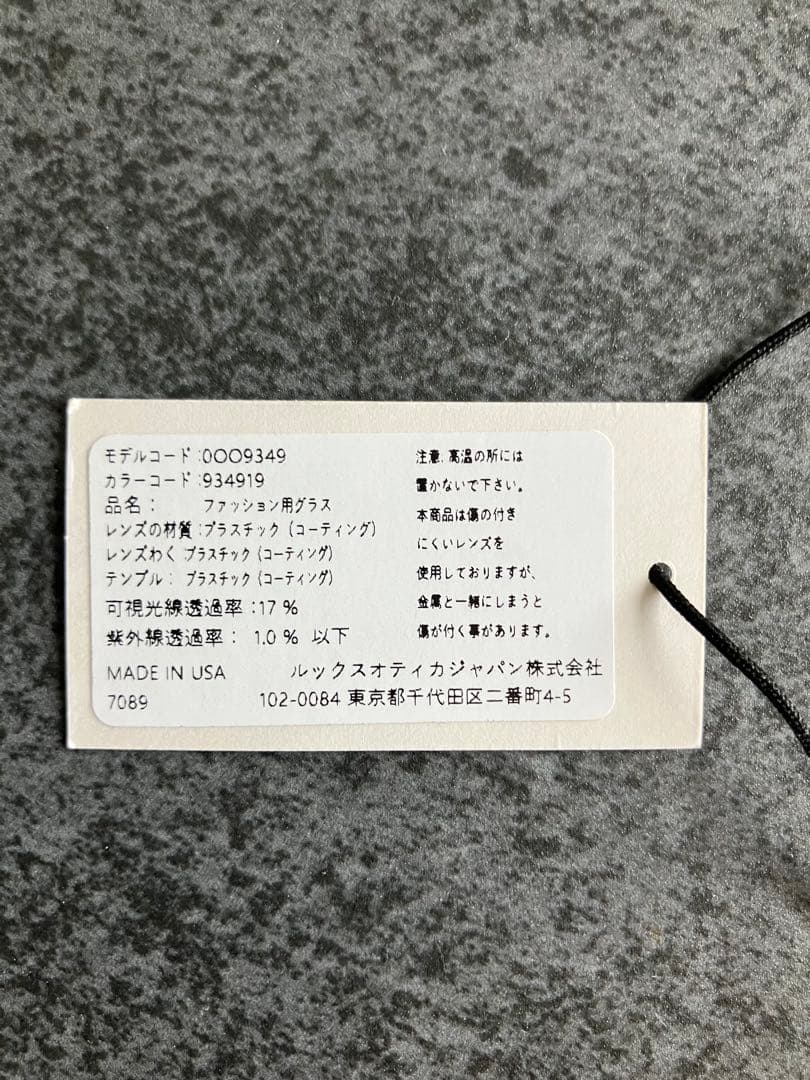 モデルコード:0OO9349
カラーコード:934919
品名: ファッション用グラス
レンズの材質:プラスチック (コーティング)
レンズわく:プラスチック (コーティング)
テンプル: プラスチック (コーティング)
可視光線透過率:17 %
紫外線透過率: 1.0 % 以下
MADE IN USA
7089
注意.高温の所には
置かないで下さい。
本商品は傷の付き
にくいレンズを
使用しておりますが、
金属と一緒にしまうと
傷が付く事があります。
ルックスオティカジャパン株式会社
102-0084 東京都千代田区二番町4-5